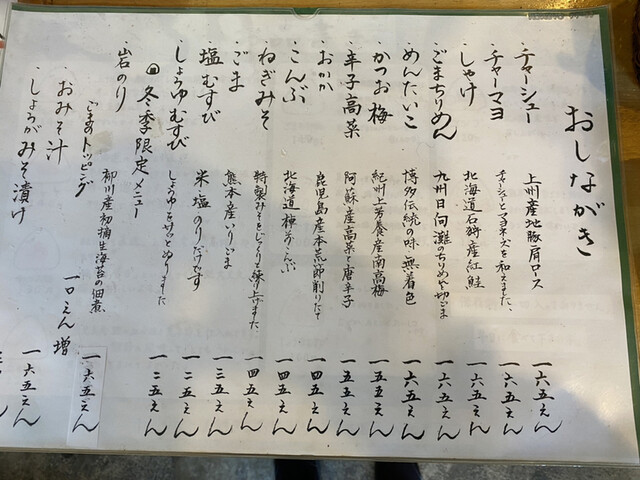 おしながき
チャーシュー 上州産地豚肩ロース 一六五えん
チャーマヨ チャーシューとマヨネーズを和えました、 一六五えん
しゃけ 北海道石狩産紅鮭 一六五えん
ごまちりめん 九州日向灘のちりめんと切ごま 一六五えん
めんたいこ 博多伝統の味 無着色 一六五えん
かつお梅 紀州上芳養産南高梅 一五五えん
辛子高菜 阿蘇産高菜と唐辛子 一五五えん
おかか 鹿児島産本荒節削りたて 一四五えん
こんぶ 北海道 こんぶ 一四五えん
ねぎみそ 特製みそをじっくり練り上げました 一四五えん
ごま 熊本産いりごま 一三五えん
塩むすび 米・塩・のりだけです 一二五えん
しょうゆむすび しょうゆをサッとぬりました 一二五えん
冬季限定メニュー
岩のり 柳川産初摘生海苔の佃煮 一六五えん
ごまのトッピング 一〇えん増
おみそ汁 一六五えん
しょうがみそ漬け